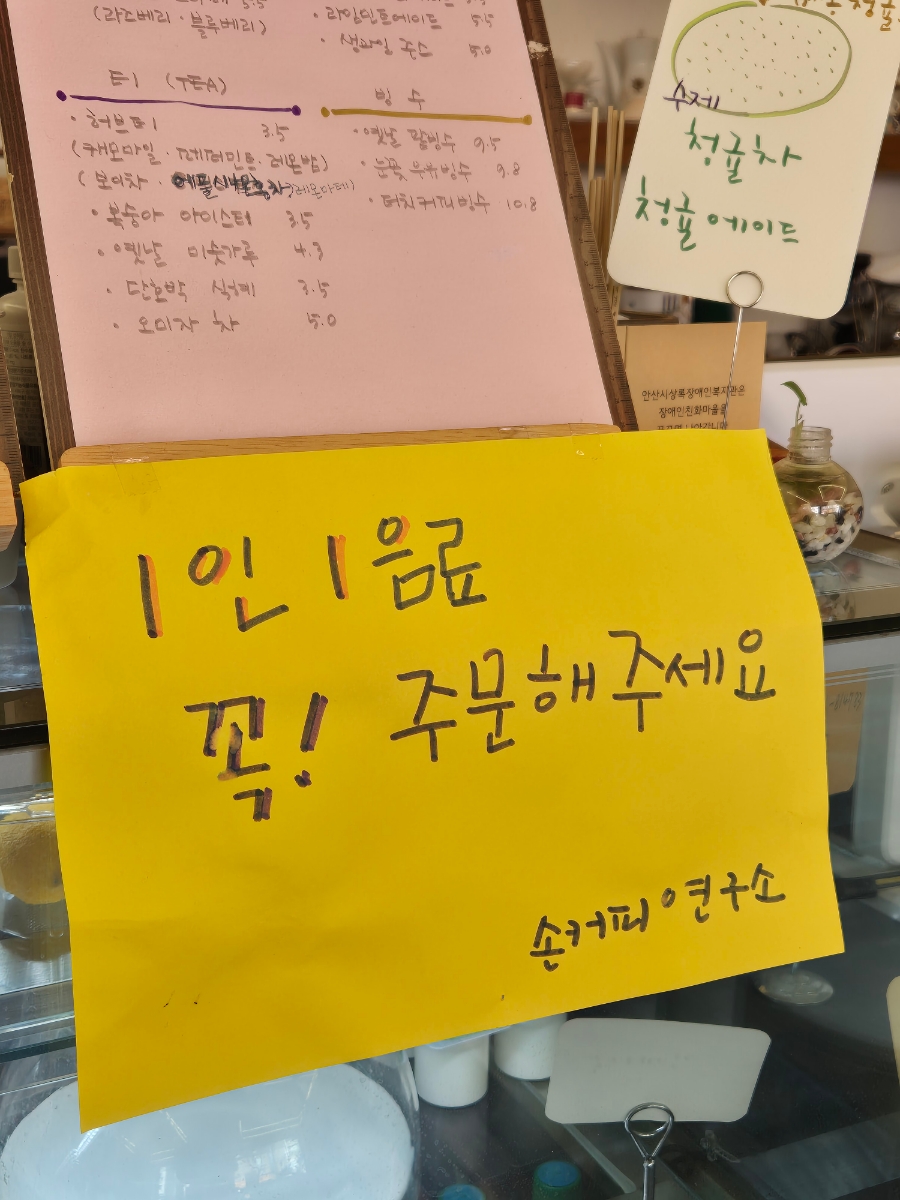 (라즈베리 · 블루베리)
티 (TEA)
· 허브티 3.5
(캐모마일 · 페퍼민트 · 레몬밤)
(보이차 ·
· 복숭아 아이스티 3.5
· 옛날 미숫가루 4.3
· 단호박 식혜 3.5
· 오미자 차 5.0
· 라임민트에이드 5.5
· 생과일 쥬스 5.0
빙 수
· 옛날 팥빙수 9.5
· 눈꽃 우유빙수 9.8
· 더치커피빙수 10.8
수제
청귤차
청귤에이드
안산시상록장애인복지관은
장애인친화마을을
1인 1음료
꼭! 주문해주세요
손커피연구소